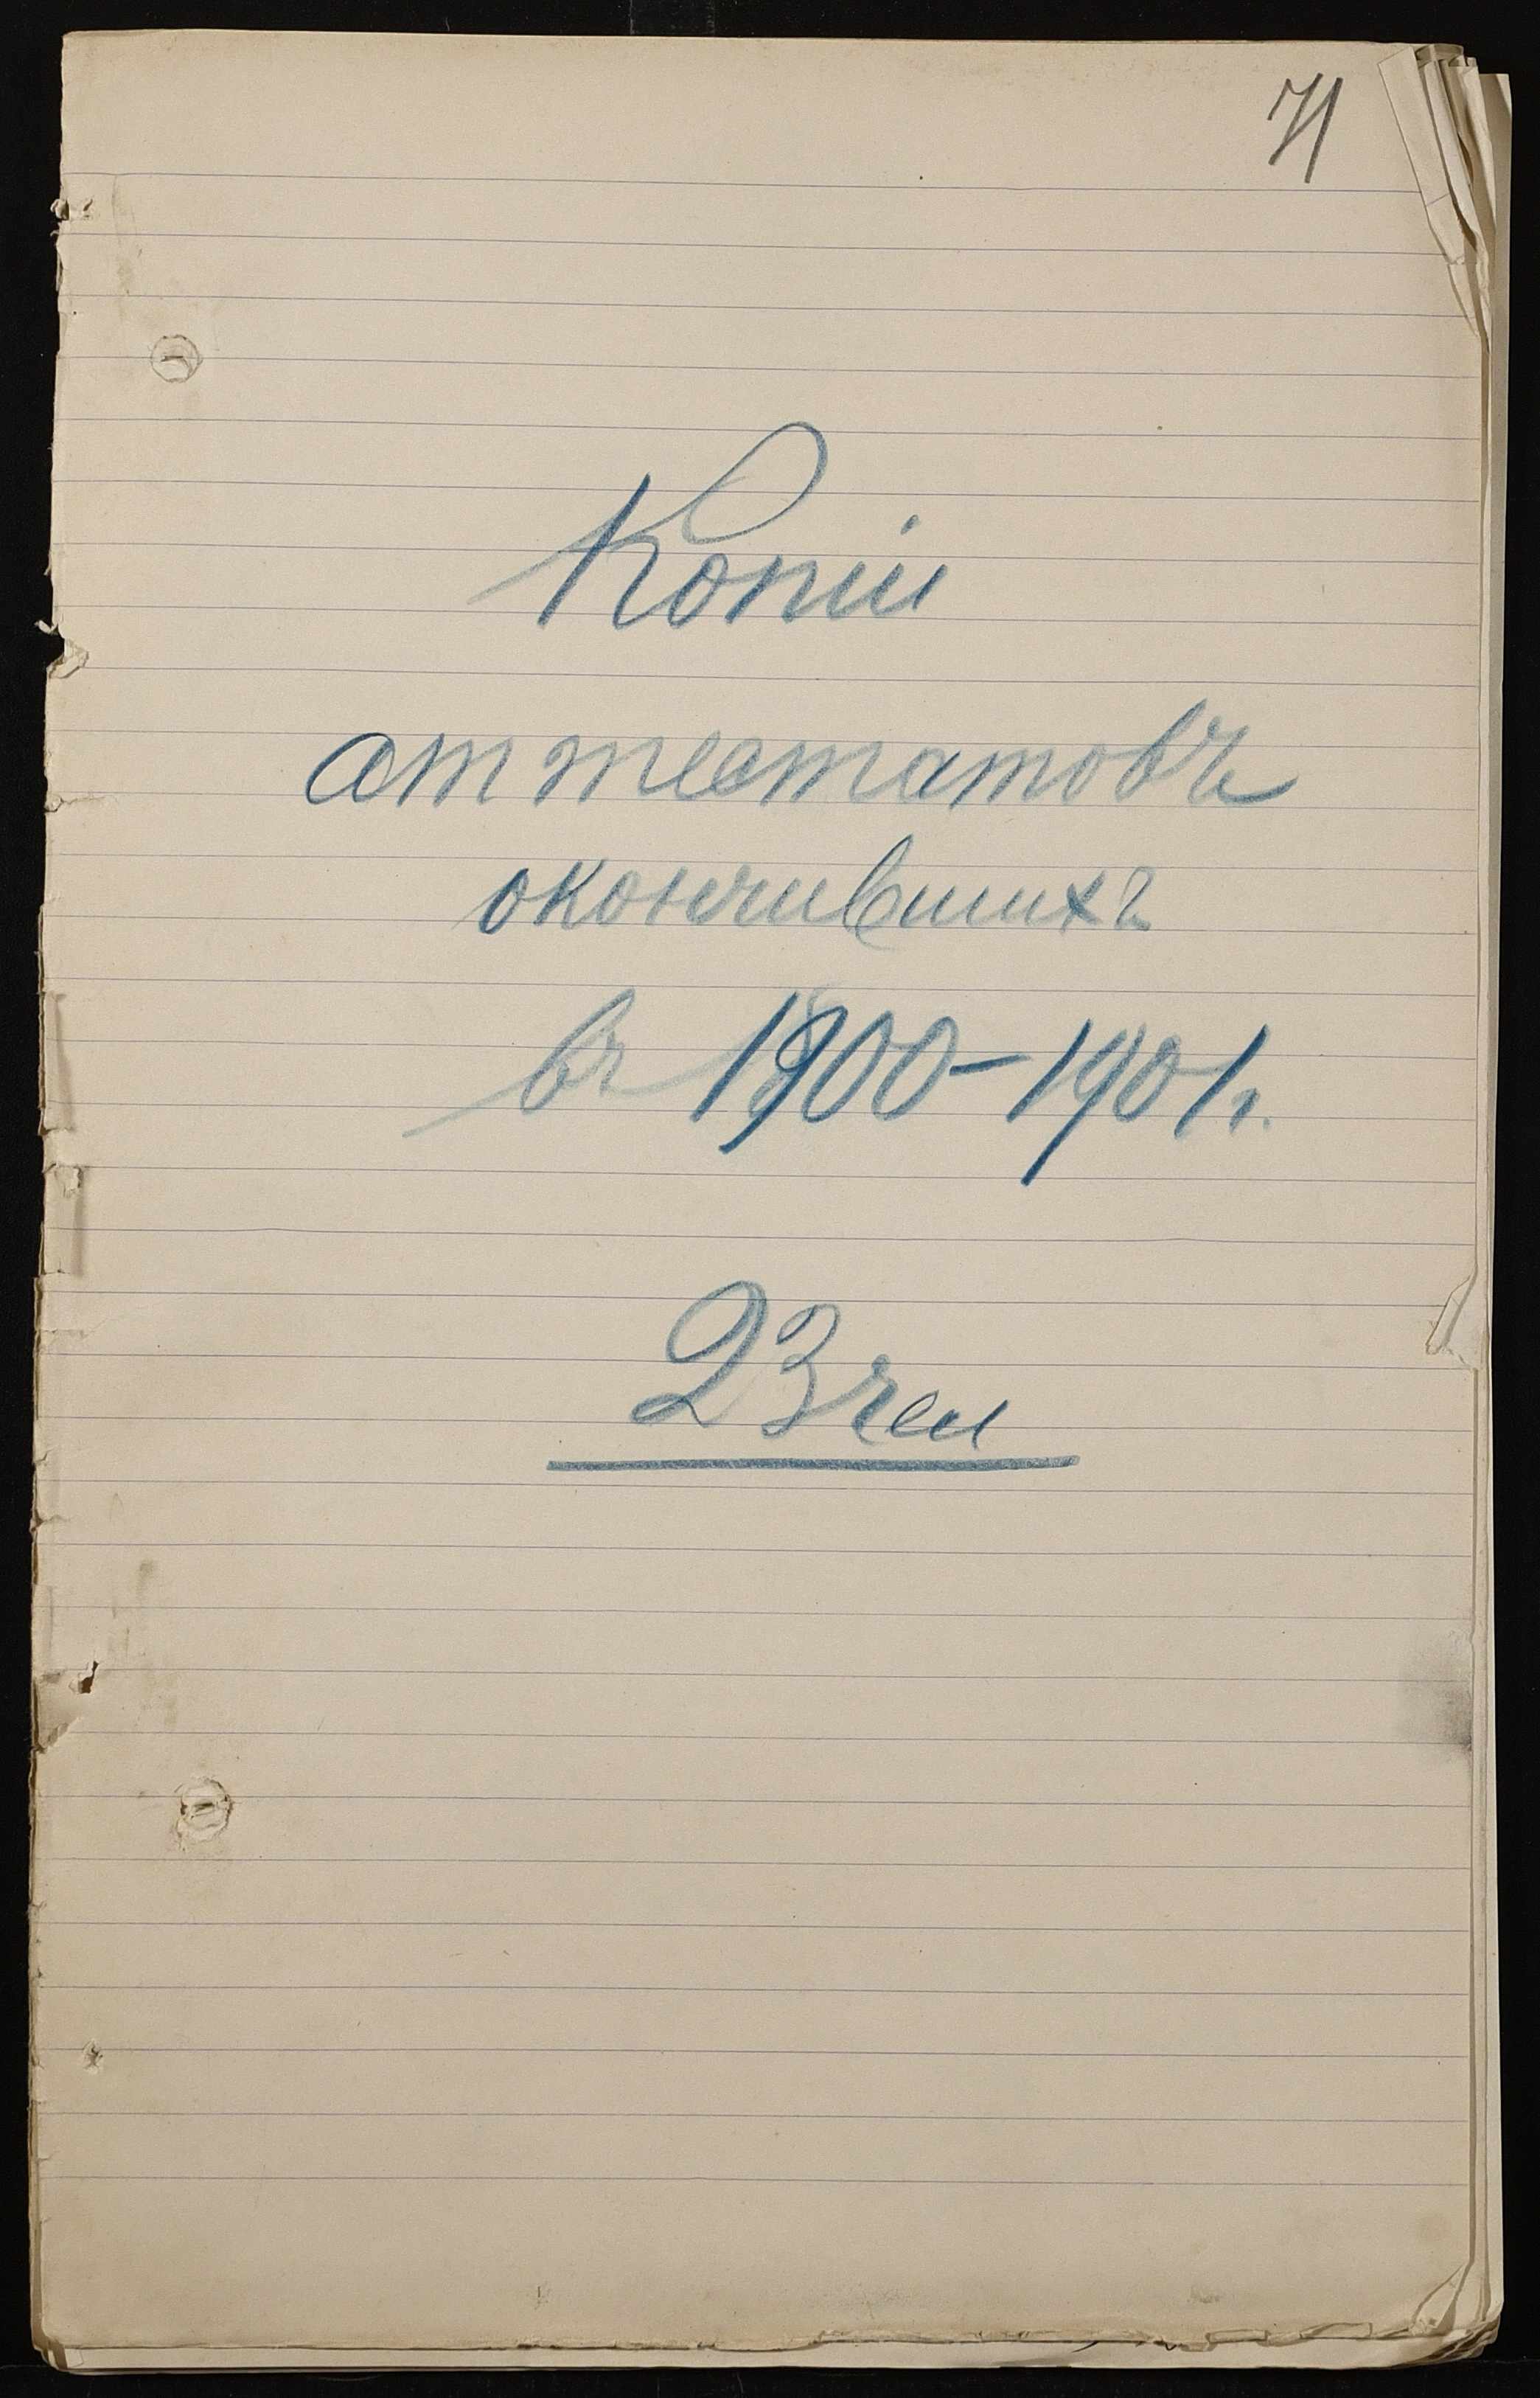 71
Копіи
аттестатовъ
окончившихъ
въ 1900-1901 г.
23 чел